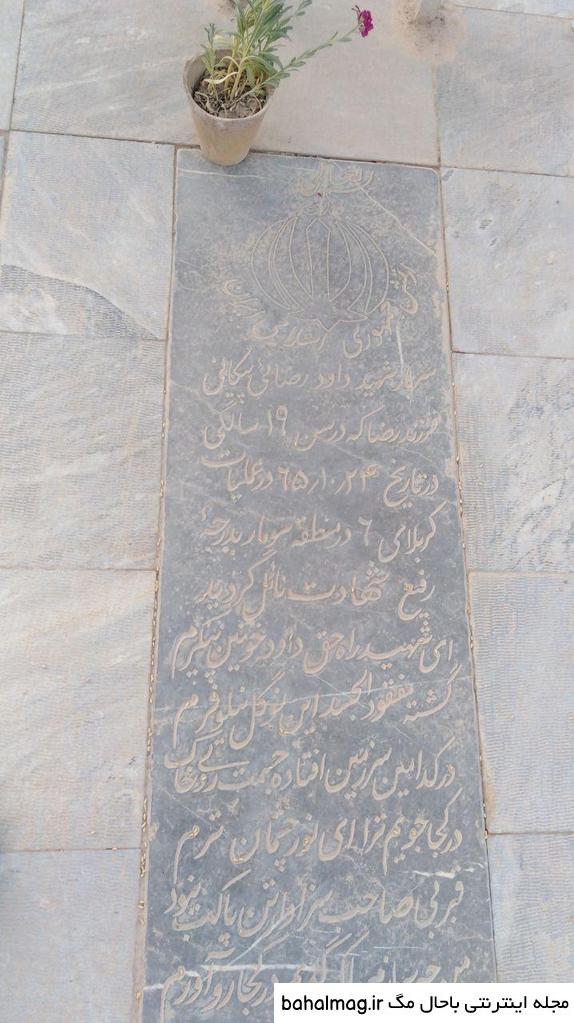 ارتش جمهوری
سرباز شهید داود رضائی پیکانی
فرزند رضا که در سن ۱۹ سالگی
در تاریخ ۶۵/۱۰/۲۴ در عملیات
کربلای ۶ در منطقه سومار بدرجهٔ
رفیع شهادت نائل گردید
ای شهید راه حق داود خونین پیکرم
گشته مفقود الجسد این نوگل نیلوفرم
در کدامین سرزمین افتاده جسمت روی خاک
در کجا جویم ترا ای نور چشمان ترم
قبر بی صاحب سزاوار تن پاکت نبود
من کجا رو آورم
مجله اینترنتی باحال مگ bahalmag.ir